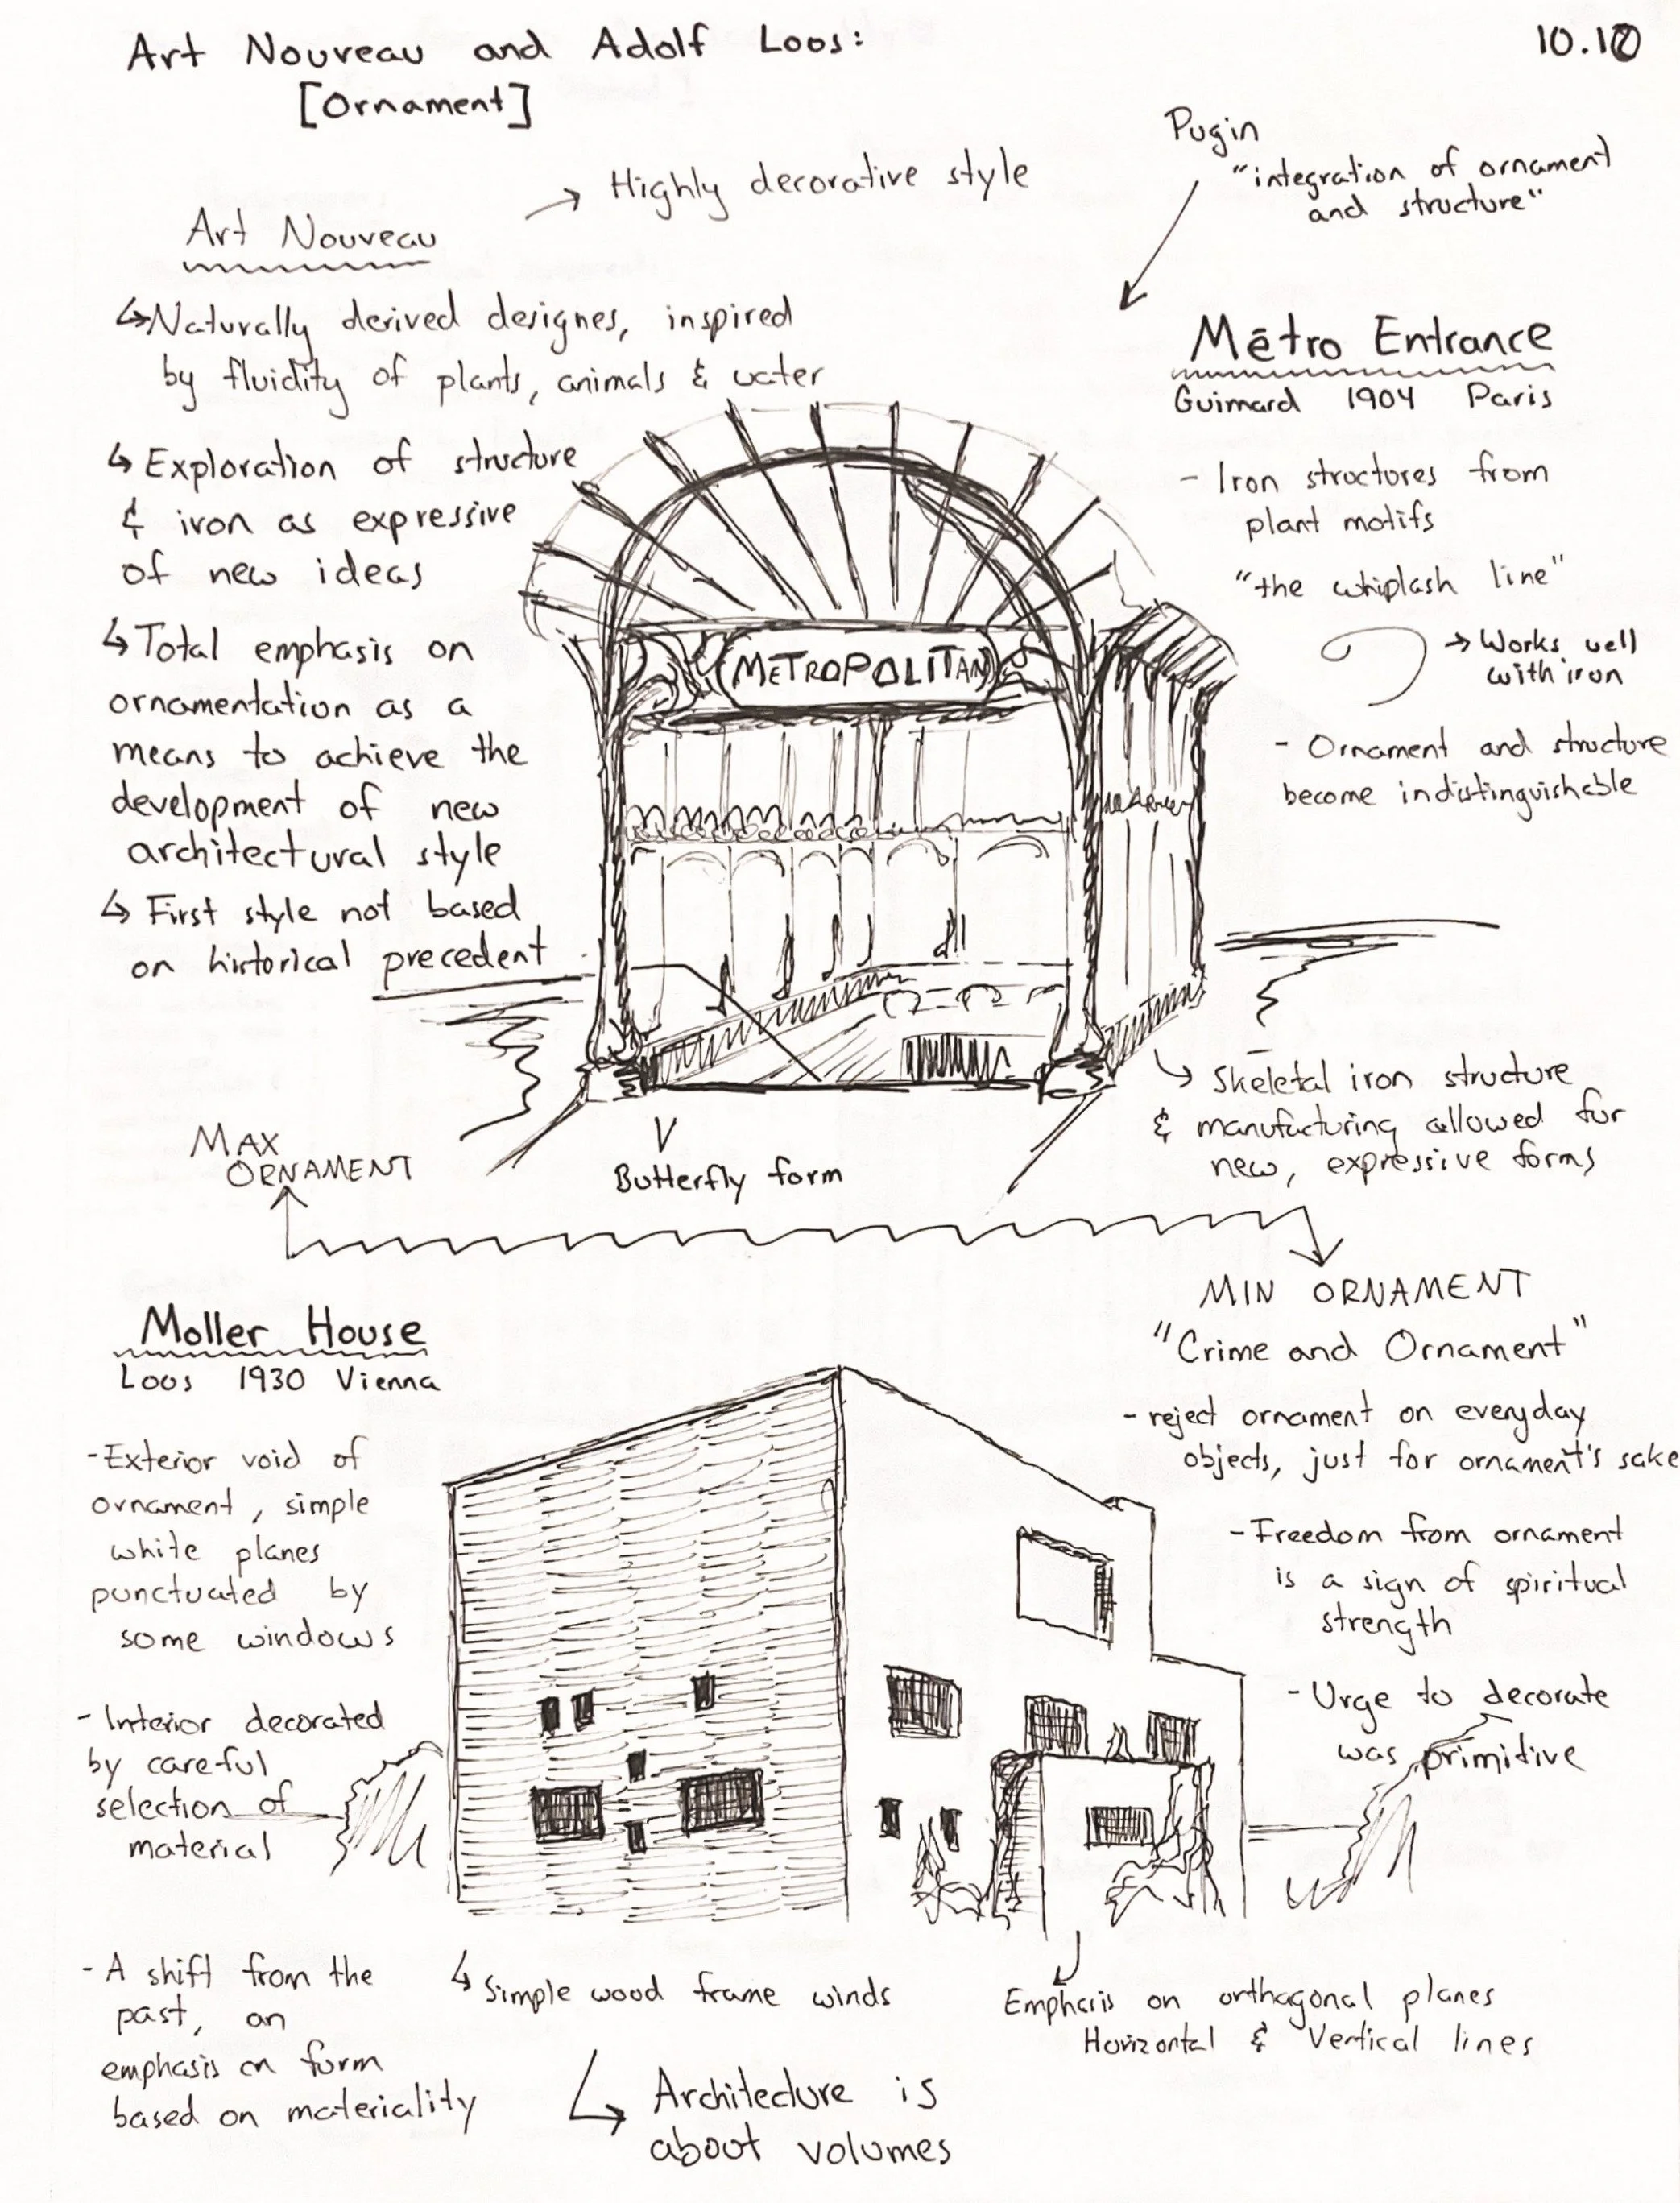 Art Nouveau and Adolf Loos:
[Ornament]
10.10
Art Nouveau
→ Highly decorative style
↳ Naturally derived designes, inspired
by fluidity of plants, animals & water
↳ Exploration of structure
& iron as expressive
of new ideas
↳ Total emphasis on
ornamentation as a
means to achieve the
development of new
architectural style
↳ First style not based
on historical precedent
Pugin
"integration of ornament
and structure"
Métro Entrance
Guimard 1904 Paris
- Iron structures from
plant motifs
"the whiplash line"
→ Works well
with iron
- Ornament and structure
become indistinguishable
METROPOLITAN
↳ Skeletal iron structure
& manufacturing allowed for
new, expressive forms
Butterfly form
MAX
ORNAMENT
MIN ORNAMENT
"Crime and Ornament"
- reject ornament on everyday
objects, just for ornament's sake
- Freedom from ornament
is a sign of spiritual
strength
- Urge to decorate
was primitive
Moller House
Loos 1930 Vienna
- Exterior void of
ornament, simple
white planes
punctuated by
some windows
- Interior decorated
by careful
selection of
material
- A shift from the
past, an
emphasis on form
based on materiality
↳ Simple wood frame winds
↳ Architecture is
about volumes
Emphasis on orthagonal planes
Horizontal & Vertical lines